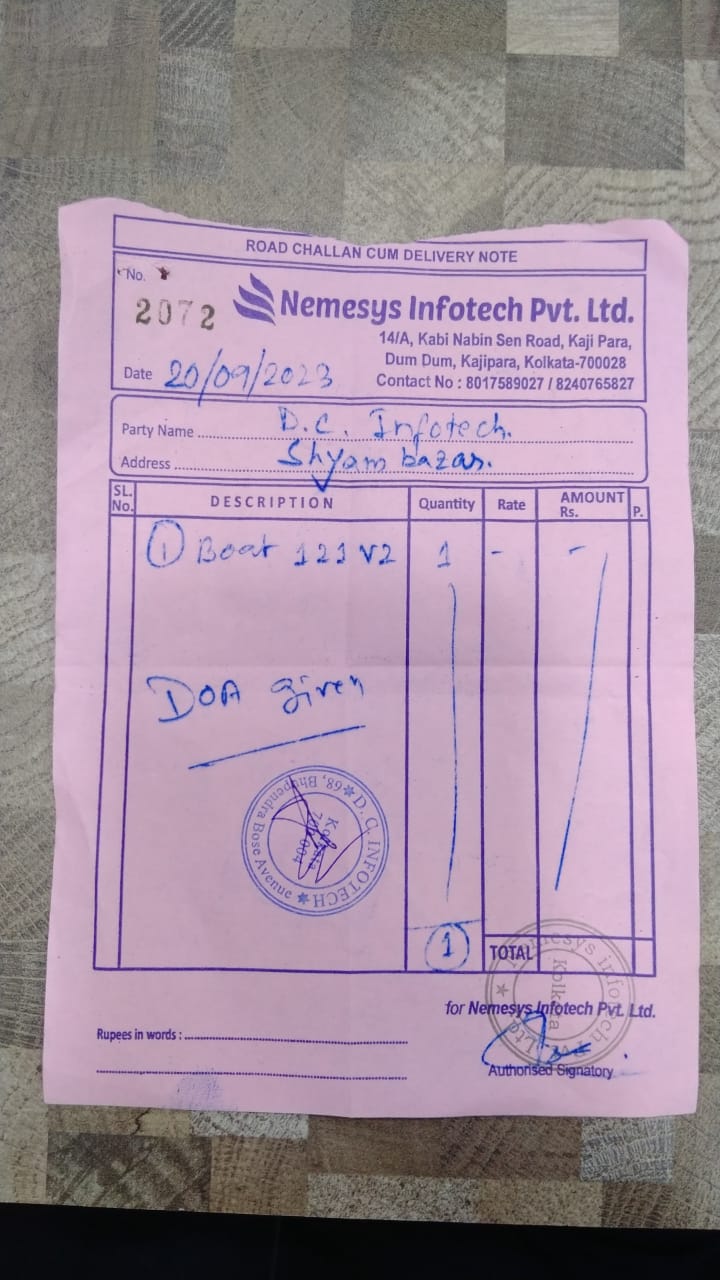 ROAD CHALLAN CUM DELIVERY NOTE
No.
2072
Nemesys Infotech Pvt. Ltd.
14/A, Kabi Nabin Sen Road, Kaji Para,
Dum Dum, Kajipara, Kolkata-700028
Contact No : 8017589027 / 8240765827
Date 20/09/2023
Party Name D.C. Infotech.
Address Shyam bazar.
SL. No. DESCRIPTION Quantity Rate AMOUNT Rs. P.
① Boat 121 V2 1 - -
DOA given
D. C. INFOTECH ★ 68, Bhupendra Bose Avenue ★
Kolkata
700 004
1 TOTAL
Nemesys Infotech
Kolkata
for Nemesys Infotech Pvt. Ltd.
Rupees in words :
Authorised Signatory